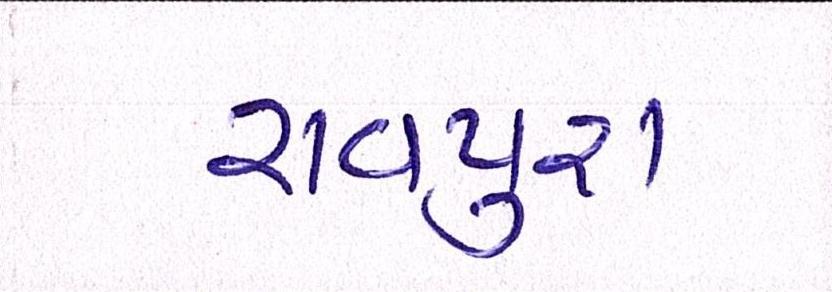 રાવપુરા